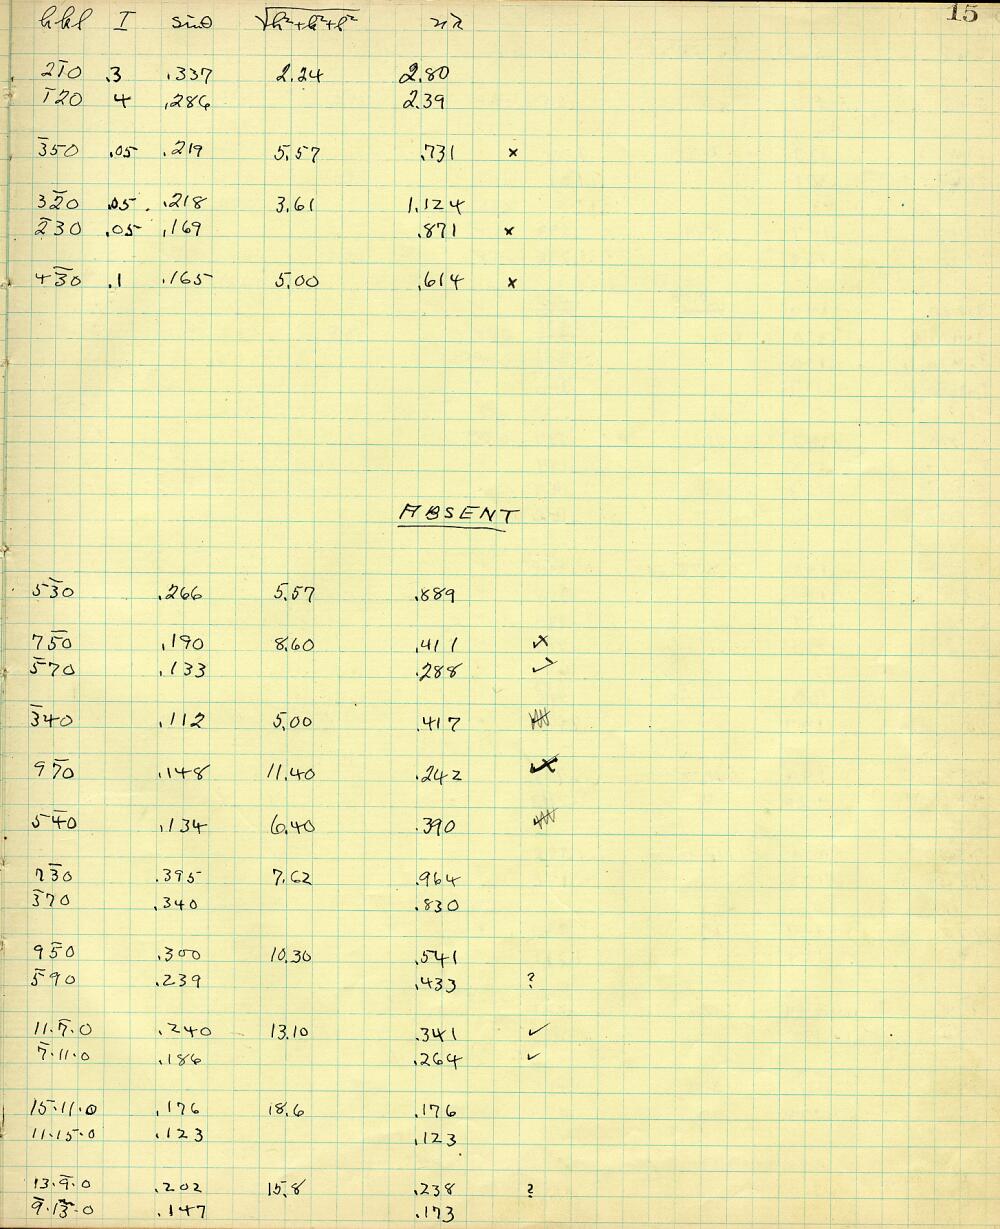 15
hkl I sinθ √h²+k²+l² nλ
2̅1̅0 .3 .337 2.24 2.80
1̅20 4 .286 2.39
3̅50 .05 .219 5.57 .731 x
32̅0 .05 .218 3.61 1.124
2̅30 .05 .169 .871 x
43̅0 .1 .165 5.00 .614 x
ABSENT
53̅0 .266 5.57 .889
75̅0 .190 8.60 .411 x
5̅70 .133 .288 ✓
3̅40 .112 5.00 .417
97̅0 .148 11.40 .242 x
54̅0 .134 6.40 .390
73̅0 .395 7.62 .964
3̅70 .340 .830
95̅0 .300 10.30 .541
5̅90 .239 .433 ?
11.7̅.0 .240 13.10 .341 ✓
7̅.11.0 .186 .264 ✓
15.11.0 .176 18.6 .176
11.15.0 .123 .123
13.9̅.0 .202 15.8 .238 ?
9̅.13.0 .147 .173